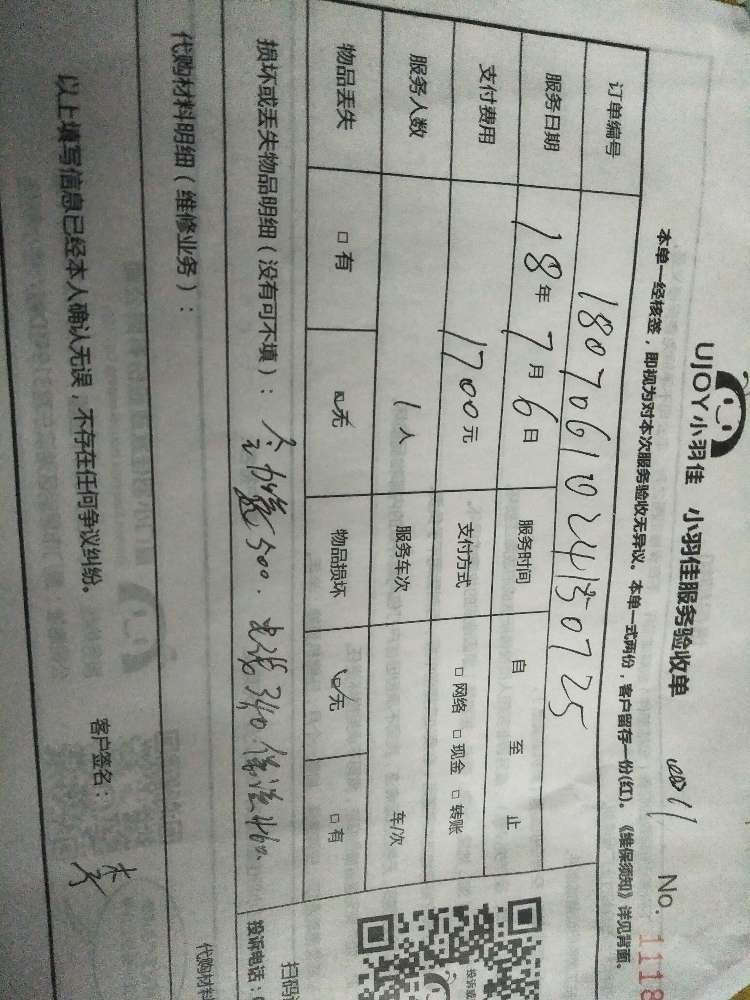 UJOY小羽佳 小羽佳服务验收单 No. 1118
本单一经核签，即视为对本次服务验收无异议。本单一式两份，客户留存一份(红)。《维保须知》详见背面。
订单编号 1807061024150725
服务日期 18年7月6日 服务时间 自 至 止
支付费用 1700元 支付方式 □网络 □现金 □转账
服务人数 1人 服务车次 车/次
物品丢失 □有 ☑无 物品损坏 ☑无 □有
损坏或丢失物品明细（没有可不填）： 500. 340. 460
代购材料明细（维修业务）：
以上填写信息已经本人确认无误，不存在任何争议纠纷。
客户签名：
扫码
投诉电话：
代购材料